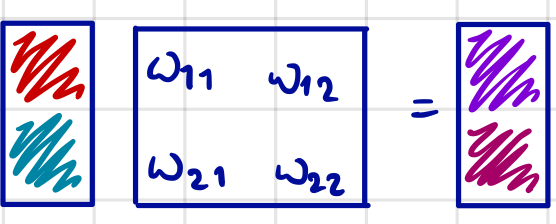 ω11 ω12 =
ω21 ω22